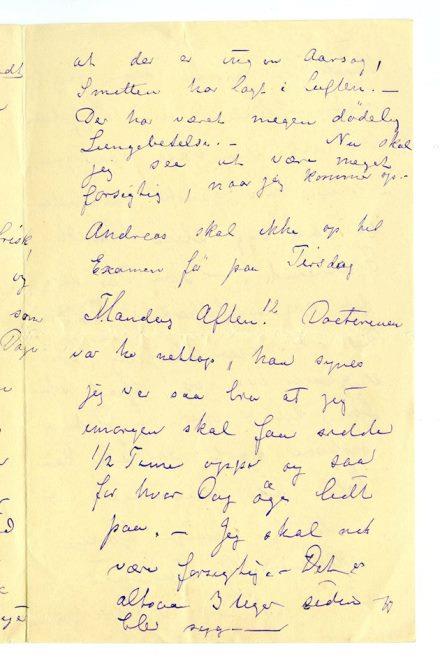 at der er ingen Aarsag,
Smitten har lagt i Luften. —
Der har været megen dødelig
Lungebetelse. — Nu skal
jeg see at være meget
forsigtig, naar jeg kommer op. —
Andreas skal ikke op til
Examen før paa Tirsdag
Mandag Aften. Doctoren
var her nettop, han synes
jeg var saa bra at jeg
imorgen skal faa sidde
1/2 Time oppe og saa
for hver Dag øge lidt
paa. — Jeg skal nok
være forsigtig. — Det er
altsaa 3 Uger siden
blev syg —
ndt
frisk,
og
som
Dage